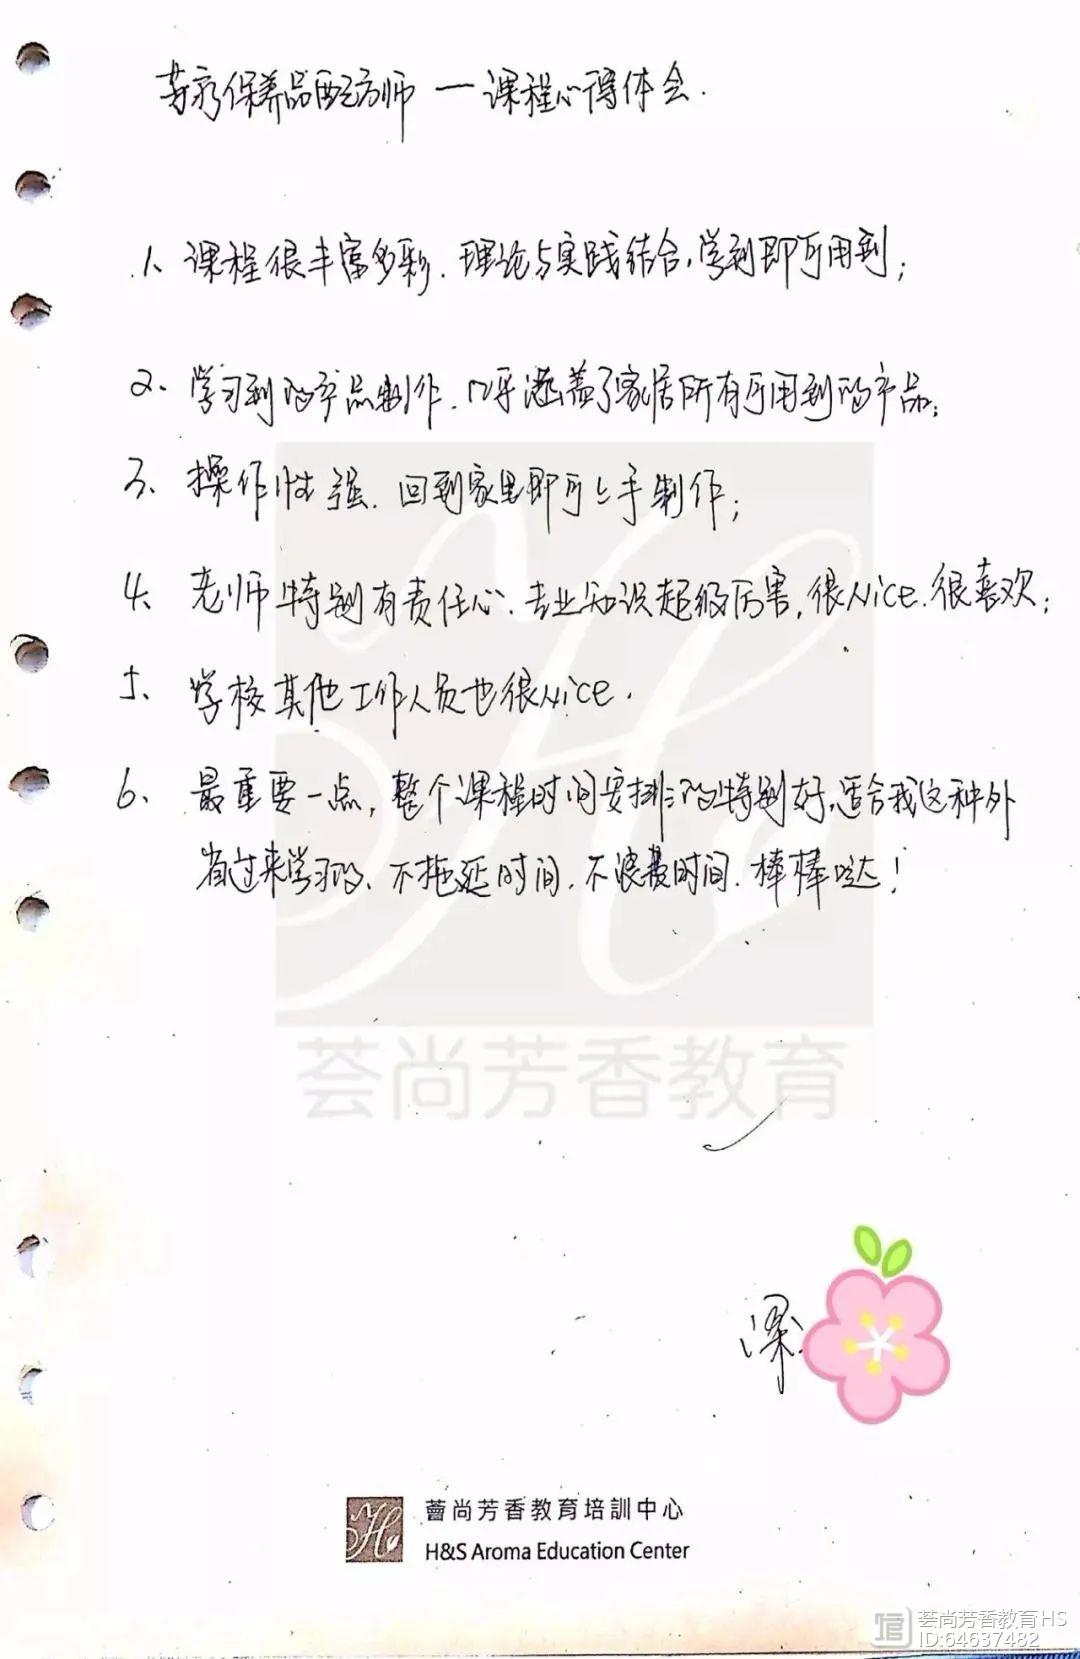 芳疗保养品配方师 — 课程心得体会.
1、课程很丰富多彩.理论与实践结合,学到即可用到;
2、学习到的产品制作.几乎涵盖了家居所有可用到的产品;
3、操作性强.回到家里即可上手制作;
4、老师特别有责任心、专业知识超级厉害,很Nice.很喜欢;
5、学校其他工作人员也很Nice.
6、最重要一点,整个课程时间安排的特别好,适合我这种外
省过来学习的、不拖延时间.不浪费时间.棒棒哒!
荟尚芳香教育
梁
薈尚芳香教育培訓中心
H&S Aroma Education Center
荟尚芳香教育HS
ID:64637482